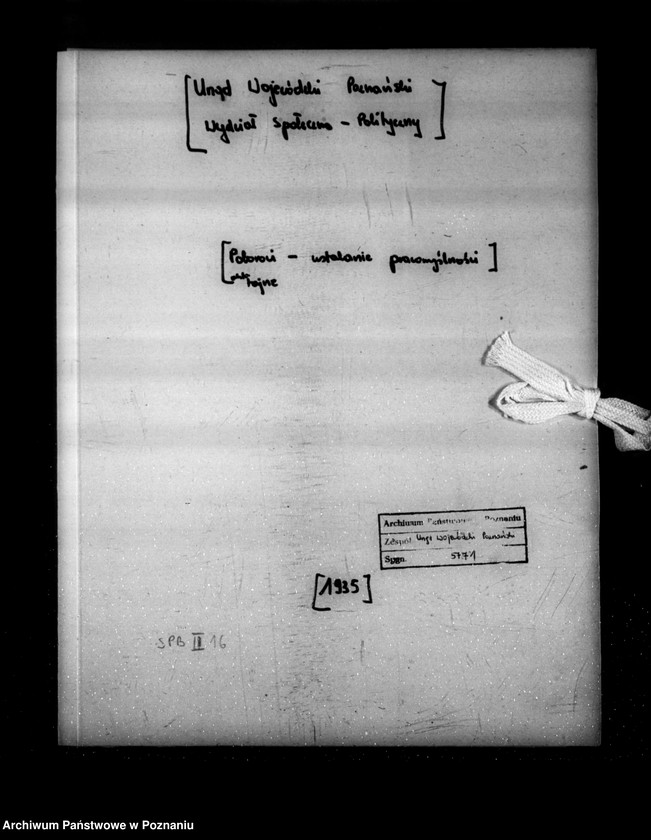 [Urząd Wojewódzki Poznański
Wydział Społeczno - Polityczny]
[Poborowi - ustalanie prawomyślności]
akta tajne
Archiwum Państwowe Poznaniu
Zespół Urząd Wojewódzki Poznański
Sygn. 5771
[1935]
SPB II 16
Archiwum Państwowe w Poznaniu